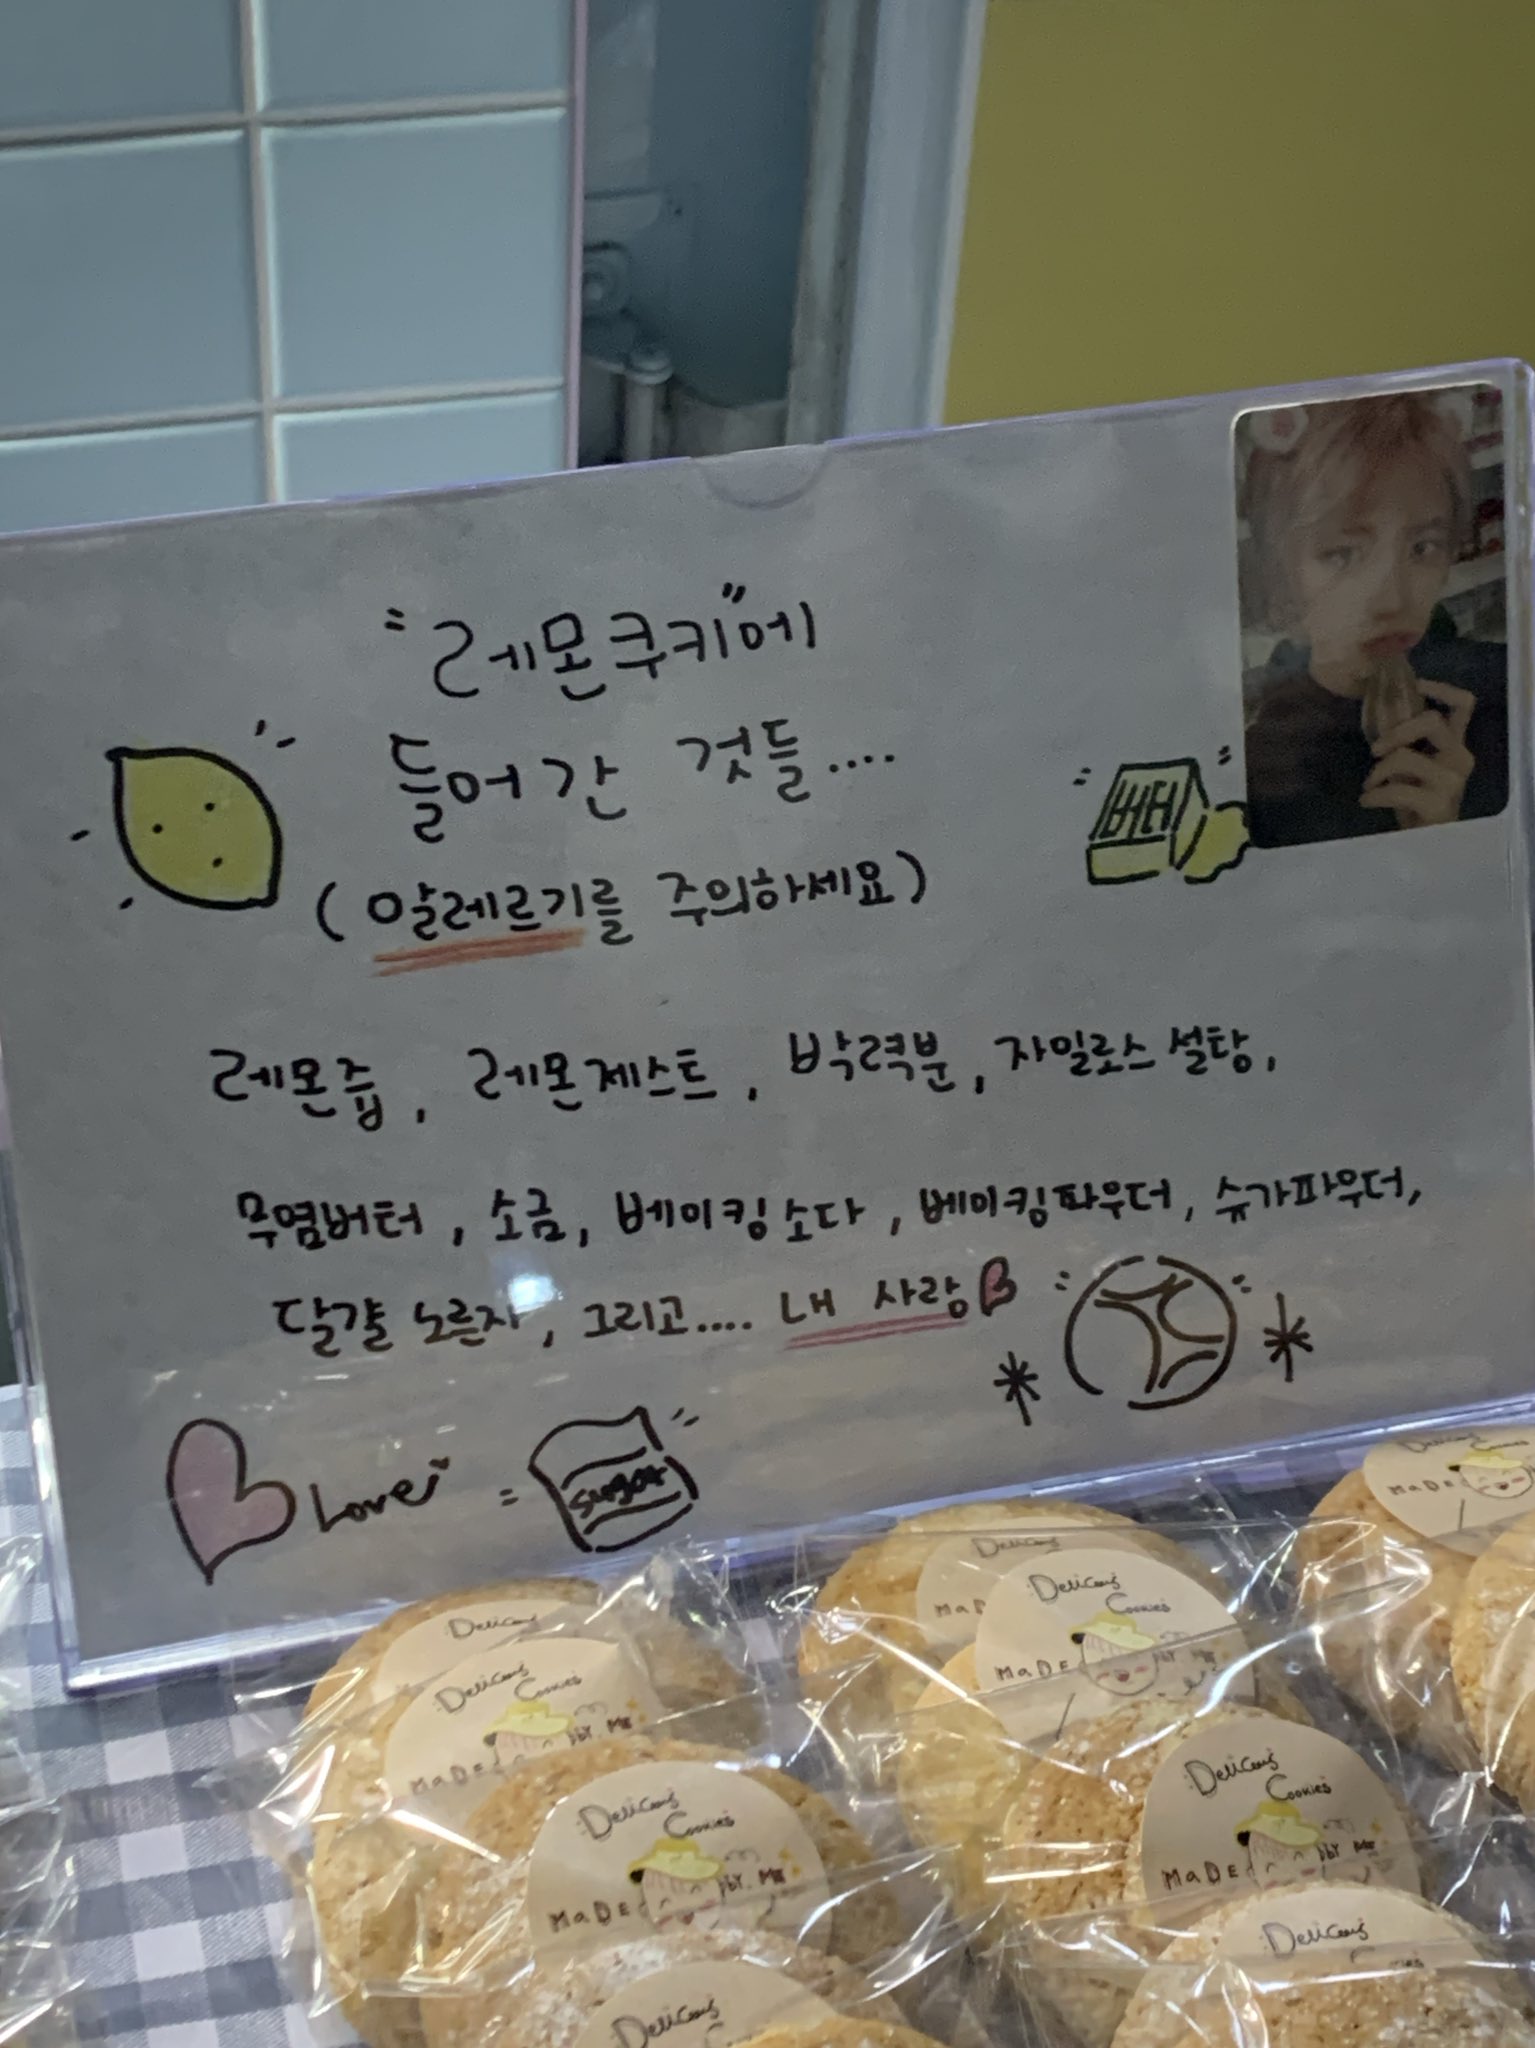 "레몬쿠키"에
들어간 것들....
(알레르기를 주의하세요)
버터
레몬즙, 레몬제스트, 박력분, 자일로스 설탕,
무염버터, 소금, 베이킹소다, 베이킹파우더, 슈가파우더,
달걀 노른자, 그리고.... 내 사랑
Love = sugar
Delicous Cookies
MaDE
Delicous
MaDE
Delicous
Cookies
MaDE bY ME
Delicous
Delicous
Cookies
MaDE bY ME
Delicous
Cookies
MaDE bY ME
Delicous
Cookies
Delicous